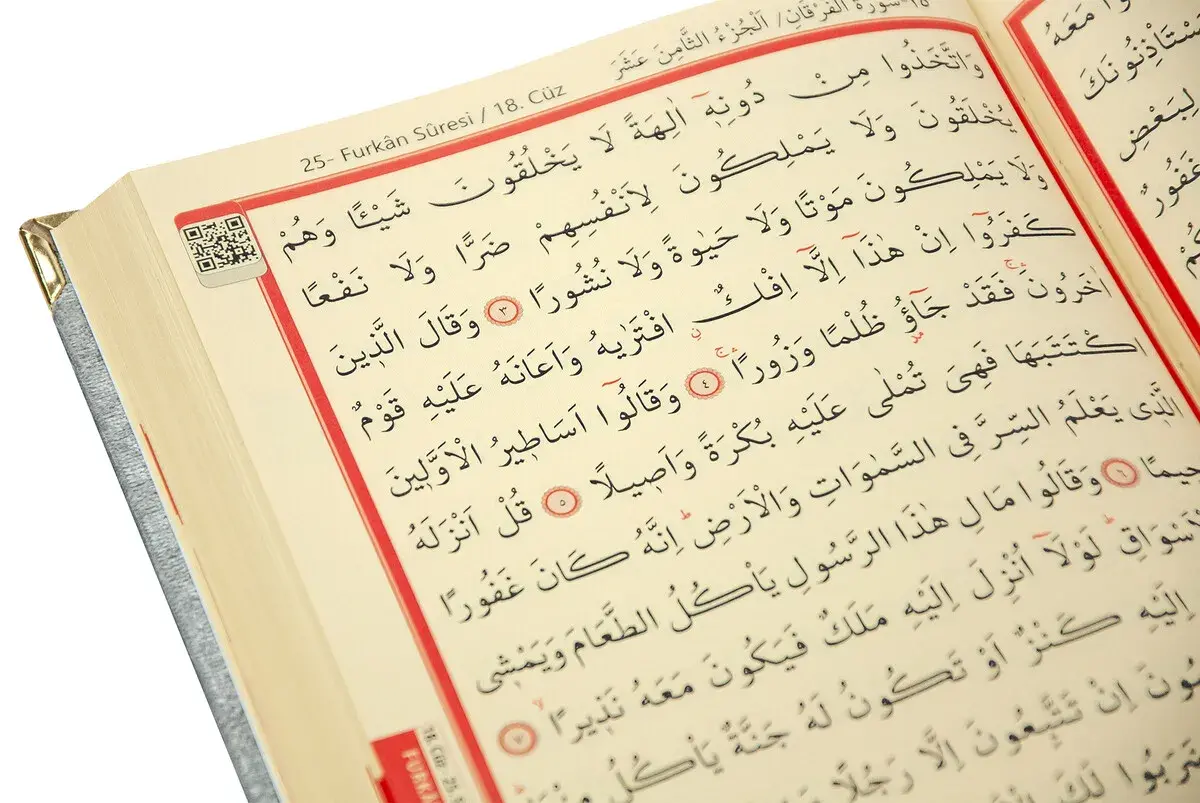 25- Furkân Sûresi / 18. Cüz
سورة الفرقان / اَلْجُزْءُ الثَّامِنَ عَشَرَ
وَاتَّخَذُوا مِنْ دُونِهِٓ اٰلِهَةً لَا يَخْلُقُونَ شَيْـًٔا وَهُمْ
يُخْلَقُونَ وَلَا يَمْلِكُونَ لِاَنْفُسِهِمْ ضَرًّا وَلَا نَفْعًا
وَلَا يَمْلِكُونَ مَوْتًا وَلَا حَيٰوةً وَلَا نُشُورًا ٣ وَقَالَ الَّذ۪ينَ
كَفَرُٓوا اِنْ هٰذَٓا اِلَّٓا اِفْكٌ افْتَرٰيهُ وَاَعَانَهُ عَلَيْهِ قَوْمٌ
اٰخَرُونَ فَقَدْ جَٓاؤُ ظُلْمًا وَزُورًا ٤ وَقَالُٓوا اَسَاط۪يرُ الْاَوَّل۪ينَ
اكْتَتَبَهَا فَهِيَ تُمْلٰى عَلَيْهِ بُكْرَةً وَاَص۪يلًا ٥ قُلْ اَنْزَلَهُ
الَّذ۪ي يَعْلَمُ السِّرَّ فِي السَّمٰوَاتِ وَالْاَرْضِ اِنَّهُ كَانَ غَفُورًا
ح۪يمًا ٦ وَقَالُوا مَالِ هٰذَا الرَّسُولِ يَأْكُلُ الطَّعَامَ وَيَمْش۪ي
لَوْلَٓا اُنْزِلَ اِلَيْهِ مَلَكٌ فَيَكُونَ مَعَهُ نَذ۪يرًا ٧
اِلَيْهِ كَنْزٌ اَوْ تَكُونُ لَهُ جَنَّةٌ يَأْكُلُ
اِنْ تَتَّبِعُونَ اِلَّا رَجُلًا
لَكَ
مَعَهُ
لِبَعْضِ
غَفُورٌ
18. Cüz